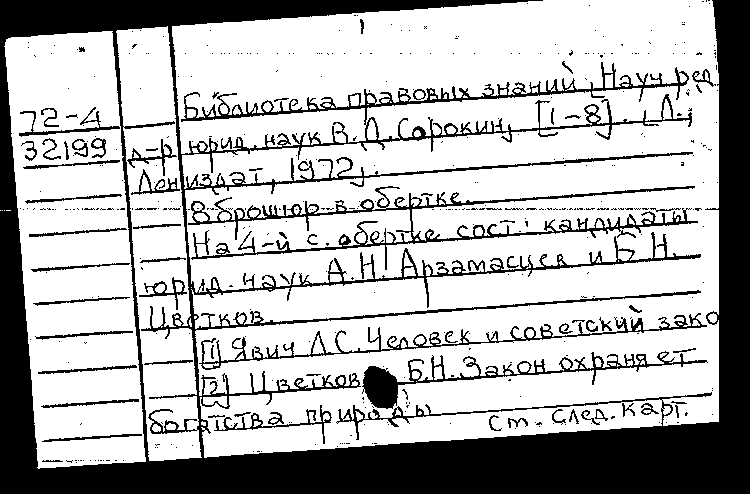 Библиотека правовых знаний, Науч ред
72-4
32199
д-р юрид. наук В.Д.Сорокин, [1-8]. , Л.,
Лениздат, 1972,.
8 брошюр в обертке.
На 4-й с. обертке сост.: кандидаты
юрид. наук А.Н. Арзамасцев и Б.Н.
Цветков.
[1] Явич Л.С. Человек и советский зако
[2] Цветков Б.Н. Закон охраняет
богатства природы
Ст. след. карт.